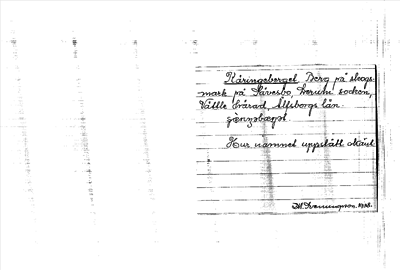 Käringeberget Berg på skogs-
mark på Sävesbo, Lerums socken,
Vättle härad, Älfsborgs län.
Hur namnet uppstått okänt